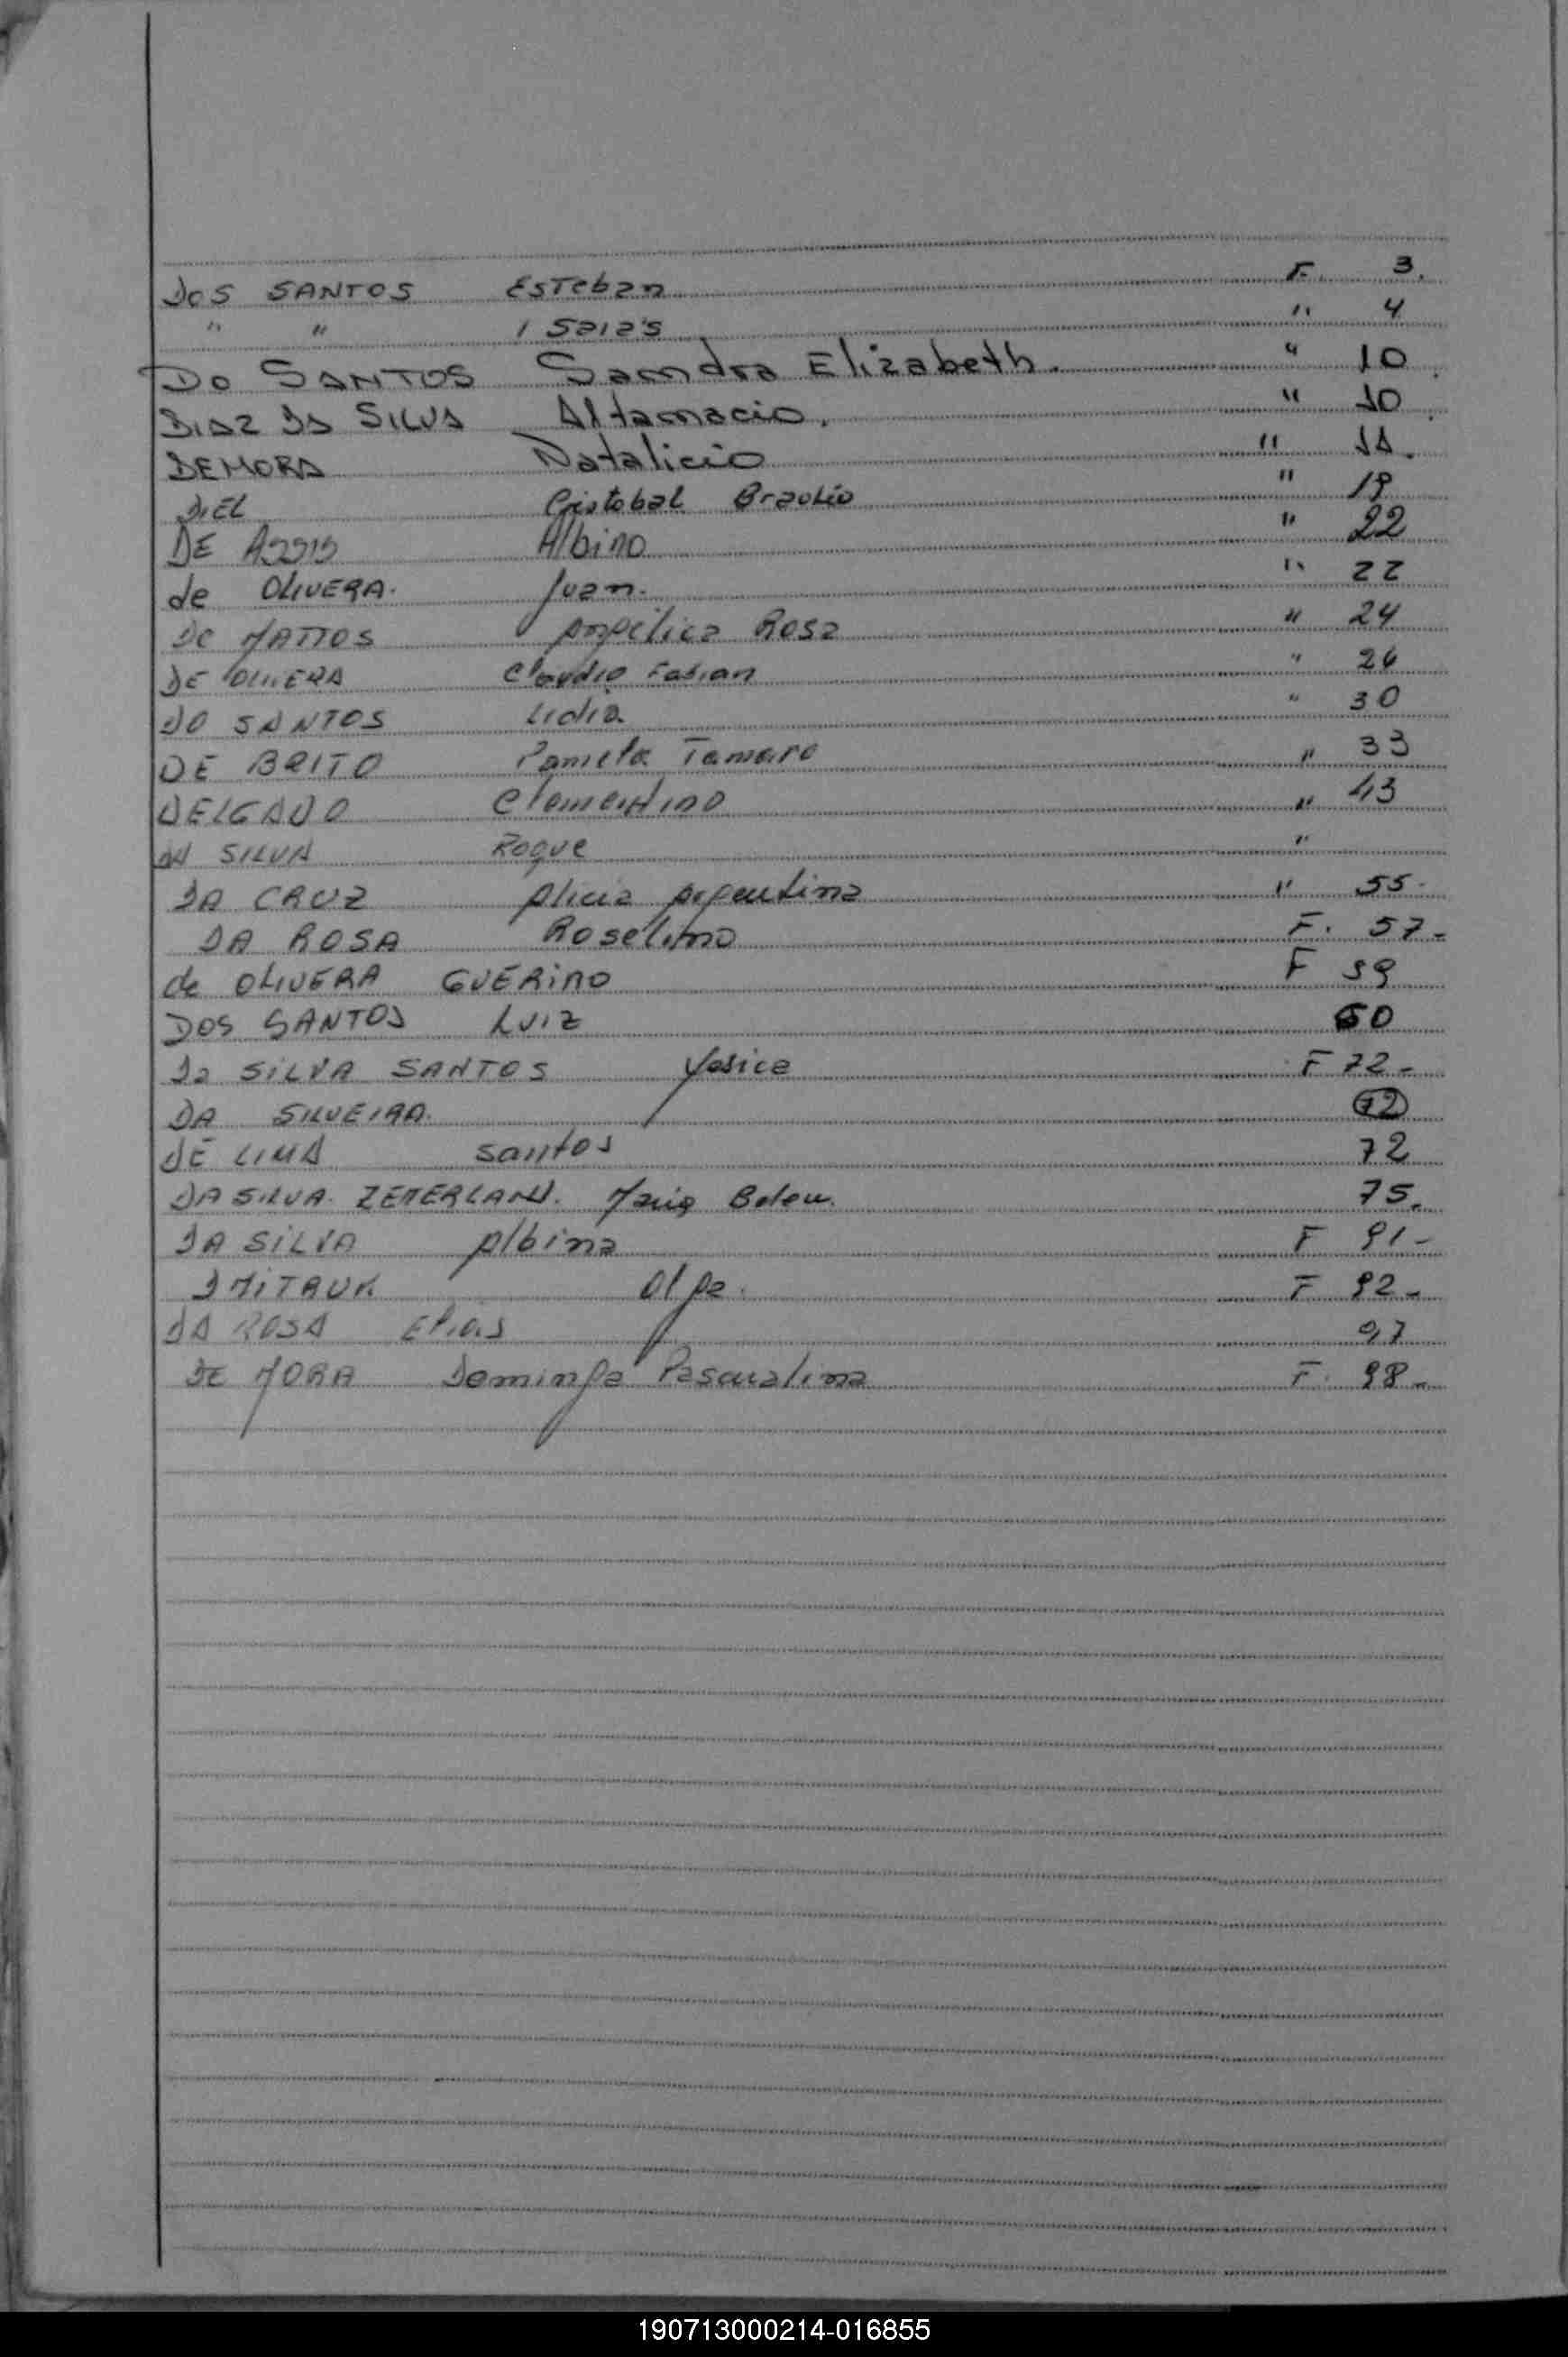 DOS SANTOS Esteban F. 3.
" " Isaias " 4
DO SANTOS Sandra Elizabeth. " 10.
DIAZ DA SILVA Altamacio. " 10.
DEMORA Natalicio " 11.
DIEL Cristobal Braulio " 19
DE ASSIS Albino " 22
de OLIVERA. Juan. " 22
DE MATTOS Angelica Rosa " 24
DE OLIVERA Claudio Fabian " 26
DO SANTOS Lidia " 30
DE BRITO Pamela Tamara " 33
DELGADO Clementino " 43
DA SILVA Roque "
DA CRUZ Alicia Argentina " 55.
DA ROSA Roselino F. 57-
de OLIVERA GUERINO F 59
DOS SANTOS LUIZ 60
Da SILVA SANTOS F 72-
DA SILVEIRA. 72
DE LIMA Santos 72
DA SILVA. Maria Belen. 75.
DA SILVA Albina F 91-
Olga. F 92-
DA ROSA Elias 97
DE MORA Dominga Pascualina F. 98-
190713000214-016855